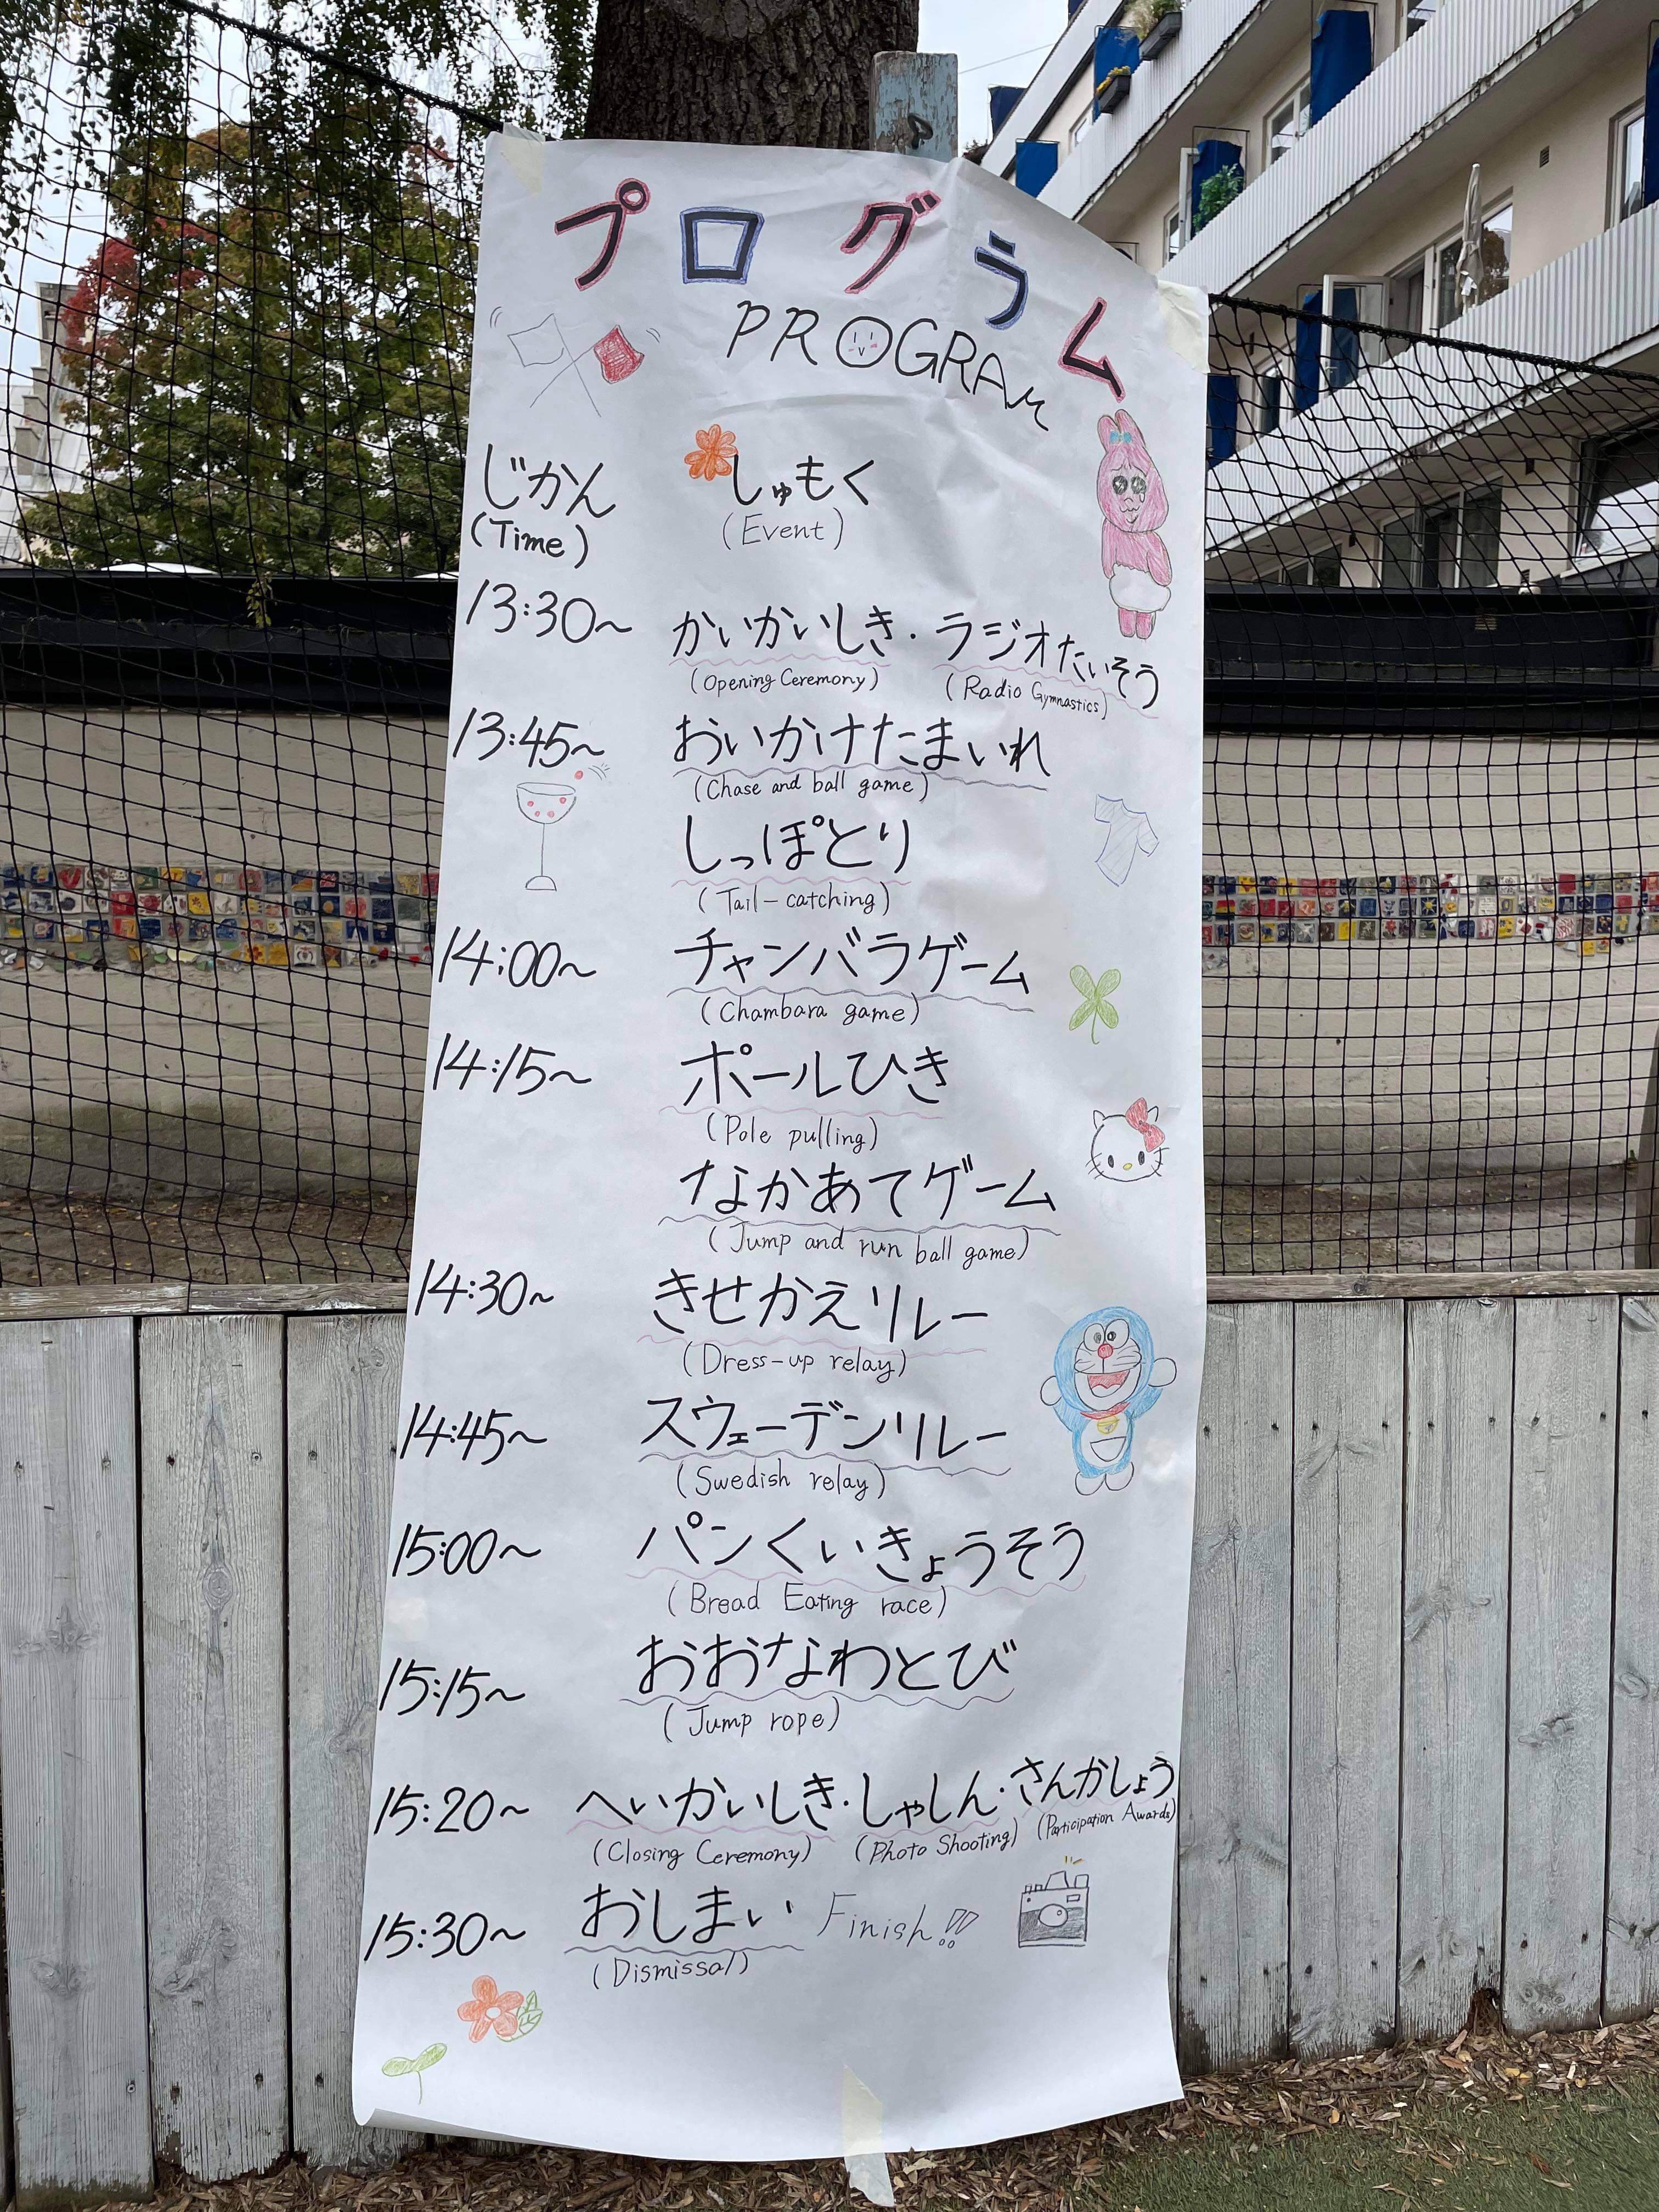 プログラム
PROGRAM
じかん しゅもく
(Time) (Event)
13:30~ かいかいしき・ラジオたいそう
(Opening Ceremony) (Radio Gymnastics)
13:45~ おいかけたまいれ
(Chase and ball game)
しっぽとり
(Tail-catching)
14:00~ チャンバラゲーム
(Chambara game)
14:15~ ポールひき
(Pole pulling)
なかあてゲーム
(Jump and run ball game)
14:30~ きせかえリレー
(Dress-up relay)
14:45~ スウェーデンリレー
(Swedish relay)
15:00~ パンくいきょうそう
(Bread Eating race)
15:15~ おおなわとび
(Jump rope)
15:20~ へいかいしき・しゃしん・さんかしょう
(Closing Ceremony) (Photo Shooting) (Participation Awards)
15:30~ おしまい Finish!!
(Dismissal)